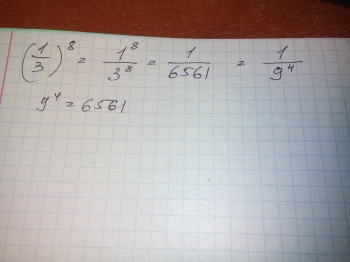 (1/3)⁸ = 1⁸/3⁸ = 1/6561 = 1/9⁴
9⁴ = 6561